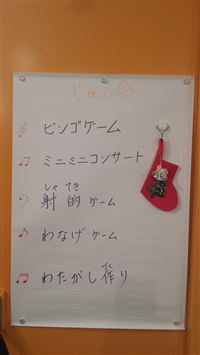 ビンゴゲーム
ミニミニコンサート
しゃ てき
射的ゲーム
わなげゲーム
づく
わたがし作り